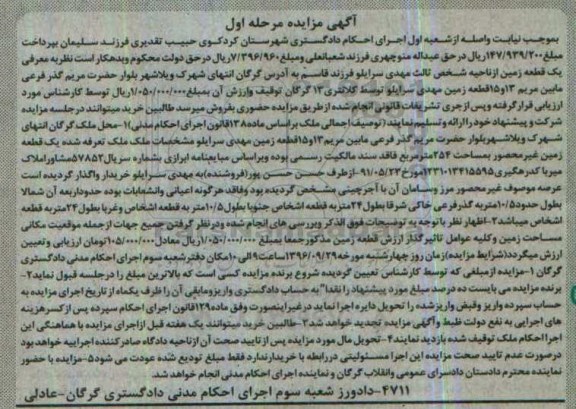 آگهی مزایده مرحله اول
بموجب نیابت واصله از شعبه اول اجرای احکام دادگستری شهرستان کردکوی حبیب تقدیری فرزند سلیمان بپرداخت
مبلغ ۱۴۷/۹۳۹/۲۰۰ ریال در حق عبداله منوچهری فرزند شعبانعلی ومبلغ ۷/۳۹۶/۹۶۰ ریال در حق دولت محکوم ویدهکار است نظر به معرفی
یک قطعه زمین از ناحیه شخص ثالث مهدی سرایلو فرزند قاسم به آدرس گرگان انتهای شهرک ویلاشهر بلوار حضرت مریم گذر فرعی
مابین مریم ۱۳و۱۵قطعه زمین مهدی سرایلو توسط کلانتری ۱۳ گرگان توقیف وارزش آن بمبلغ ۱/۰۵۰/۰۰۰/۰۰۰ریال توسط کارشناس مورد
ارزیابی قرار گرفته وپس از جری تشریفات قانونی انجام شده از طریق مزایده حضوری بفروش میرسد طالبین خرید میتوانند در جلسه مزایده
شرکت و پیشنهاد خود را ارائه و تسلیم نمایند (توصیف اجمالی ملک بر اساس ماده ۱۳۸قانون اجرای احکام مدنی) ۱-محل ملک گرگان انتهای
شهرک ویلاشهر بلوار حضرت مریم گذر فرعی مابین مریم ۱۳و۱۵قطعه زمین مهدی سرایلو مشخصات ملک ملک تعرفه شده یک قطعه
زمین غیر محصور بمساحت ۲۵۴مترمربع فاقد سند مالکیت رسمی بوده وبراساس مبایعنامه ابرازی بشماره سریال ۵۷۸۵۲مشاور املاک
میربا کدرهگیری ۱۲۳۱۰۱۳۴۱۵۵۹۵مورخ ۹۱/۰۵/۲۳-از طرف حسن حسن پور(فروشنده)به مهدی سرایلو خریدار واگذار گردیده است
عرصه موصوف غیر محصور مرز وسامان آن با آجرچینی مشخص گردیده بود وفاقد هر گونه اعیانی وانشعابات بوده حدود اربعه آن شمالا
بطول حدود ۱۰/۵متر به گذر فرعی خاکی شرقا بطول ۲۴متر به قطعه اشخاص جنوبا بطول ۱۰/۵متر به قطعه اشخاص وغربا بطول ۲۴متر به قطعه
اشخاص میباشد ۲-اظهار نظر با توجه به توضیحات فوق الذکر وبررسی های انجام شده ودر نظر گرفتن جمیع جهات از جمله موقعیت مکانی
مساحت زمین و کلیه عوامل تاثیر گذار ارزش قطعه زمین مذکور جمعا بمبلغ ۱/۰۵۰/۰۰۰/۰۰۰ریال معادل ۱۰۵/۰۰۰/۰۰۰تومان ارزیابی و تعیین
ارزش میگردد(شرایط مزایده)زمان روز چهارشنبه مورخه ۱۳۹۶/۰۹/۲۹ساعت ۹الی ۱۰مکان دفتر شعبه سوم اجرای احکام مدنی دادگستری
گرگان ۱-مزایده از مبلغی که توسط کارشناس تعیین گردیده شروع برنده مزایده کسی است که بالاترین مبلغ را در جلسه قبول نماید ۲-
برنده مزایده می بایست ده درصد مبلغ مورد پیشنهاد را نقدا" به حساب دادگستری واریز ومابقی آن را ظرف یکماه از تاریخ اجرای مزایده به
حساب سپرده واریز وقبض واریز شده را تحویل دایره اجرا نماید در غیر اینصورت وفق ماده ۱۲۹قانون اجرای احکام سپرده پس از کسر هزینه
های اجرایی به نفع دولت ظبط و آگهی مزایده تجدید خواهد شد ۳-طالبین خرید میتوانند یک هفته قبل از اجرای مزایده با هماهنگی این
اجرا احکام ملک توقیف شده بازدید نمایند ۴-تحویل مال مورد مزایده پس از تایید صحت آن از ناحیه دادگاه صادر کننده اجراییه خواهد بود
در صورت عدم تایید صحت مزایده این اجرا مسئولیتی در رابطه با خریدار ندارد فقط مبلغ تودیع شده عودت می شود ۵-مزایده با حضور
نماینده محترم دادستان دادسرای عمومی وانقلاب گرگان و نماینده اجرای احکام مدنی انجام خواهد شد.
۴۷۱۱-دادورز شعبه سوم اجرای احکام مدنی دادگستری گرگان-عادلی